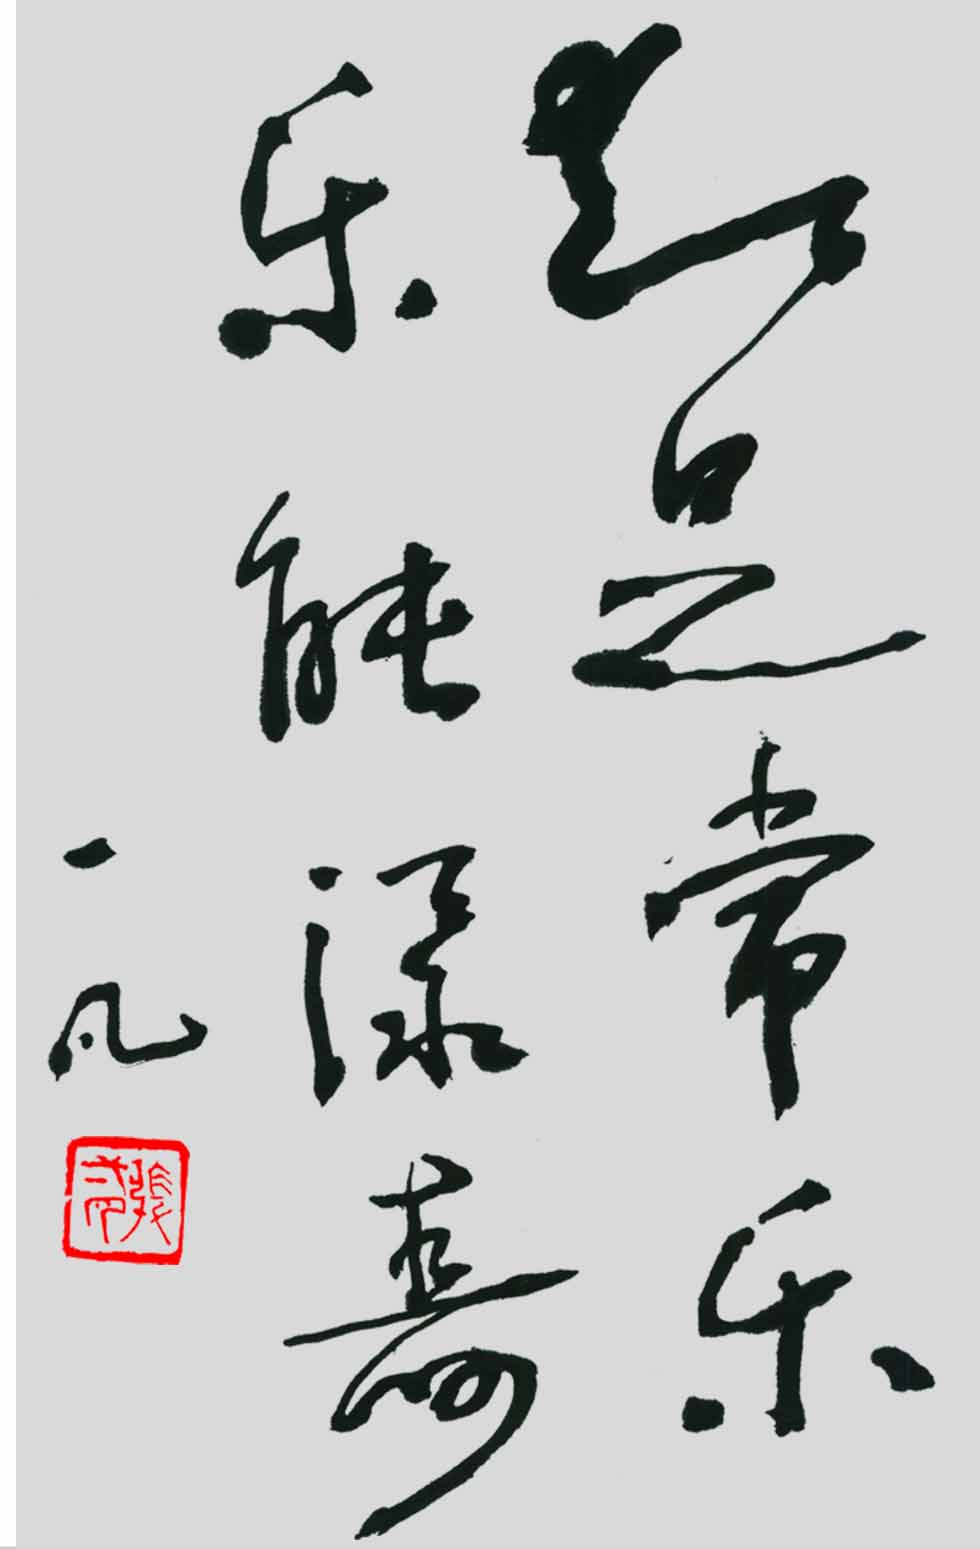 知足常乐
乐能添寿
一凡